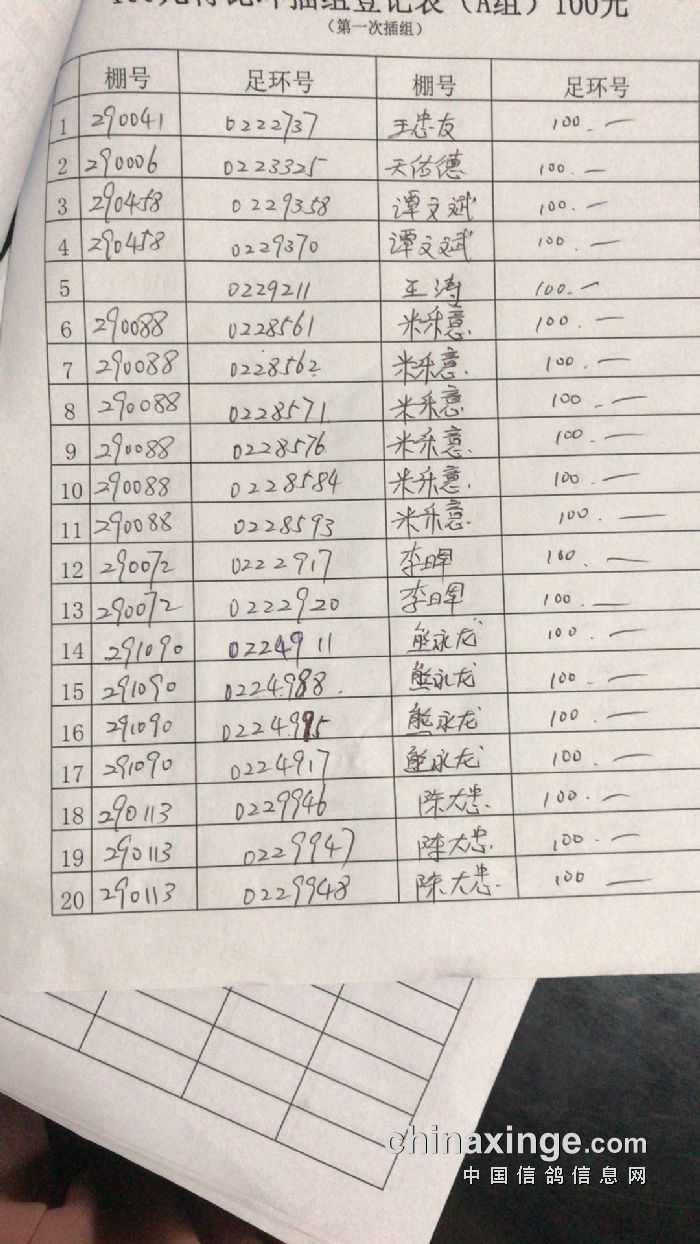 100元特比环插组登记表（A组）100元
（第一次插组）
棚号 足环号 棚号 足环号
1 290041 0222737 王忠友 100.一
2 290006 0223325 天佑德 100.一
3 290458 0229358 谭文斌 100.一
4 290458 0229370 谭文斌 100.一
5 0229211 王涛 100.一
6 290088 0228561 米乐意 100.一
7 290088 0228562 米乐意. 100.一
8 290088 0228571 米乐意 100.一
9 290088 0228576 米乐意. 100.一
10 290088 0228584 米乐意. 100.一
11 290088 0228593 米乐意. 100.一
12 290072 0222917 李晖 100.一
13 290072 0222920 李晖 100.一
14 291090 0224911 熊永龙 100.一
15 291090 0224988. 熊永龙 100.一
16 291090 0224995 熊永龙 100.一
17 291090 0224917 熊永龙 100.一
18 290113 0229946 陈大忠. 100.一
19 290113 0229947 陈大忠. 100.一
20 290113 0229948 陈大忠. 100 一
chinaxinge.com
中国信鸽信息网